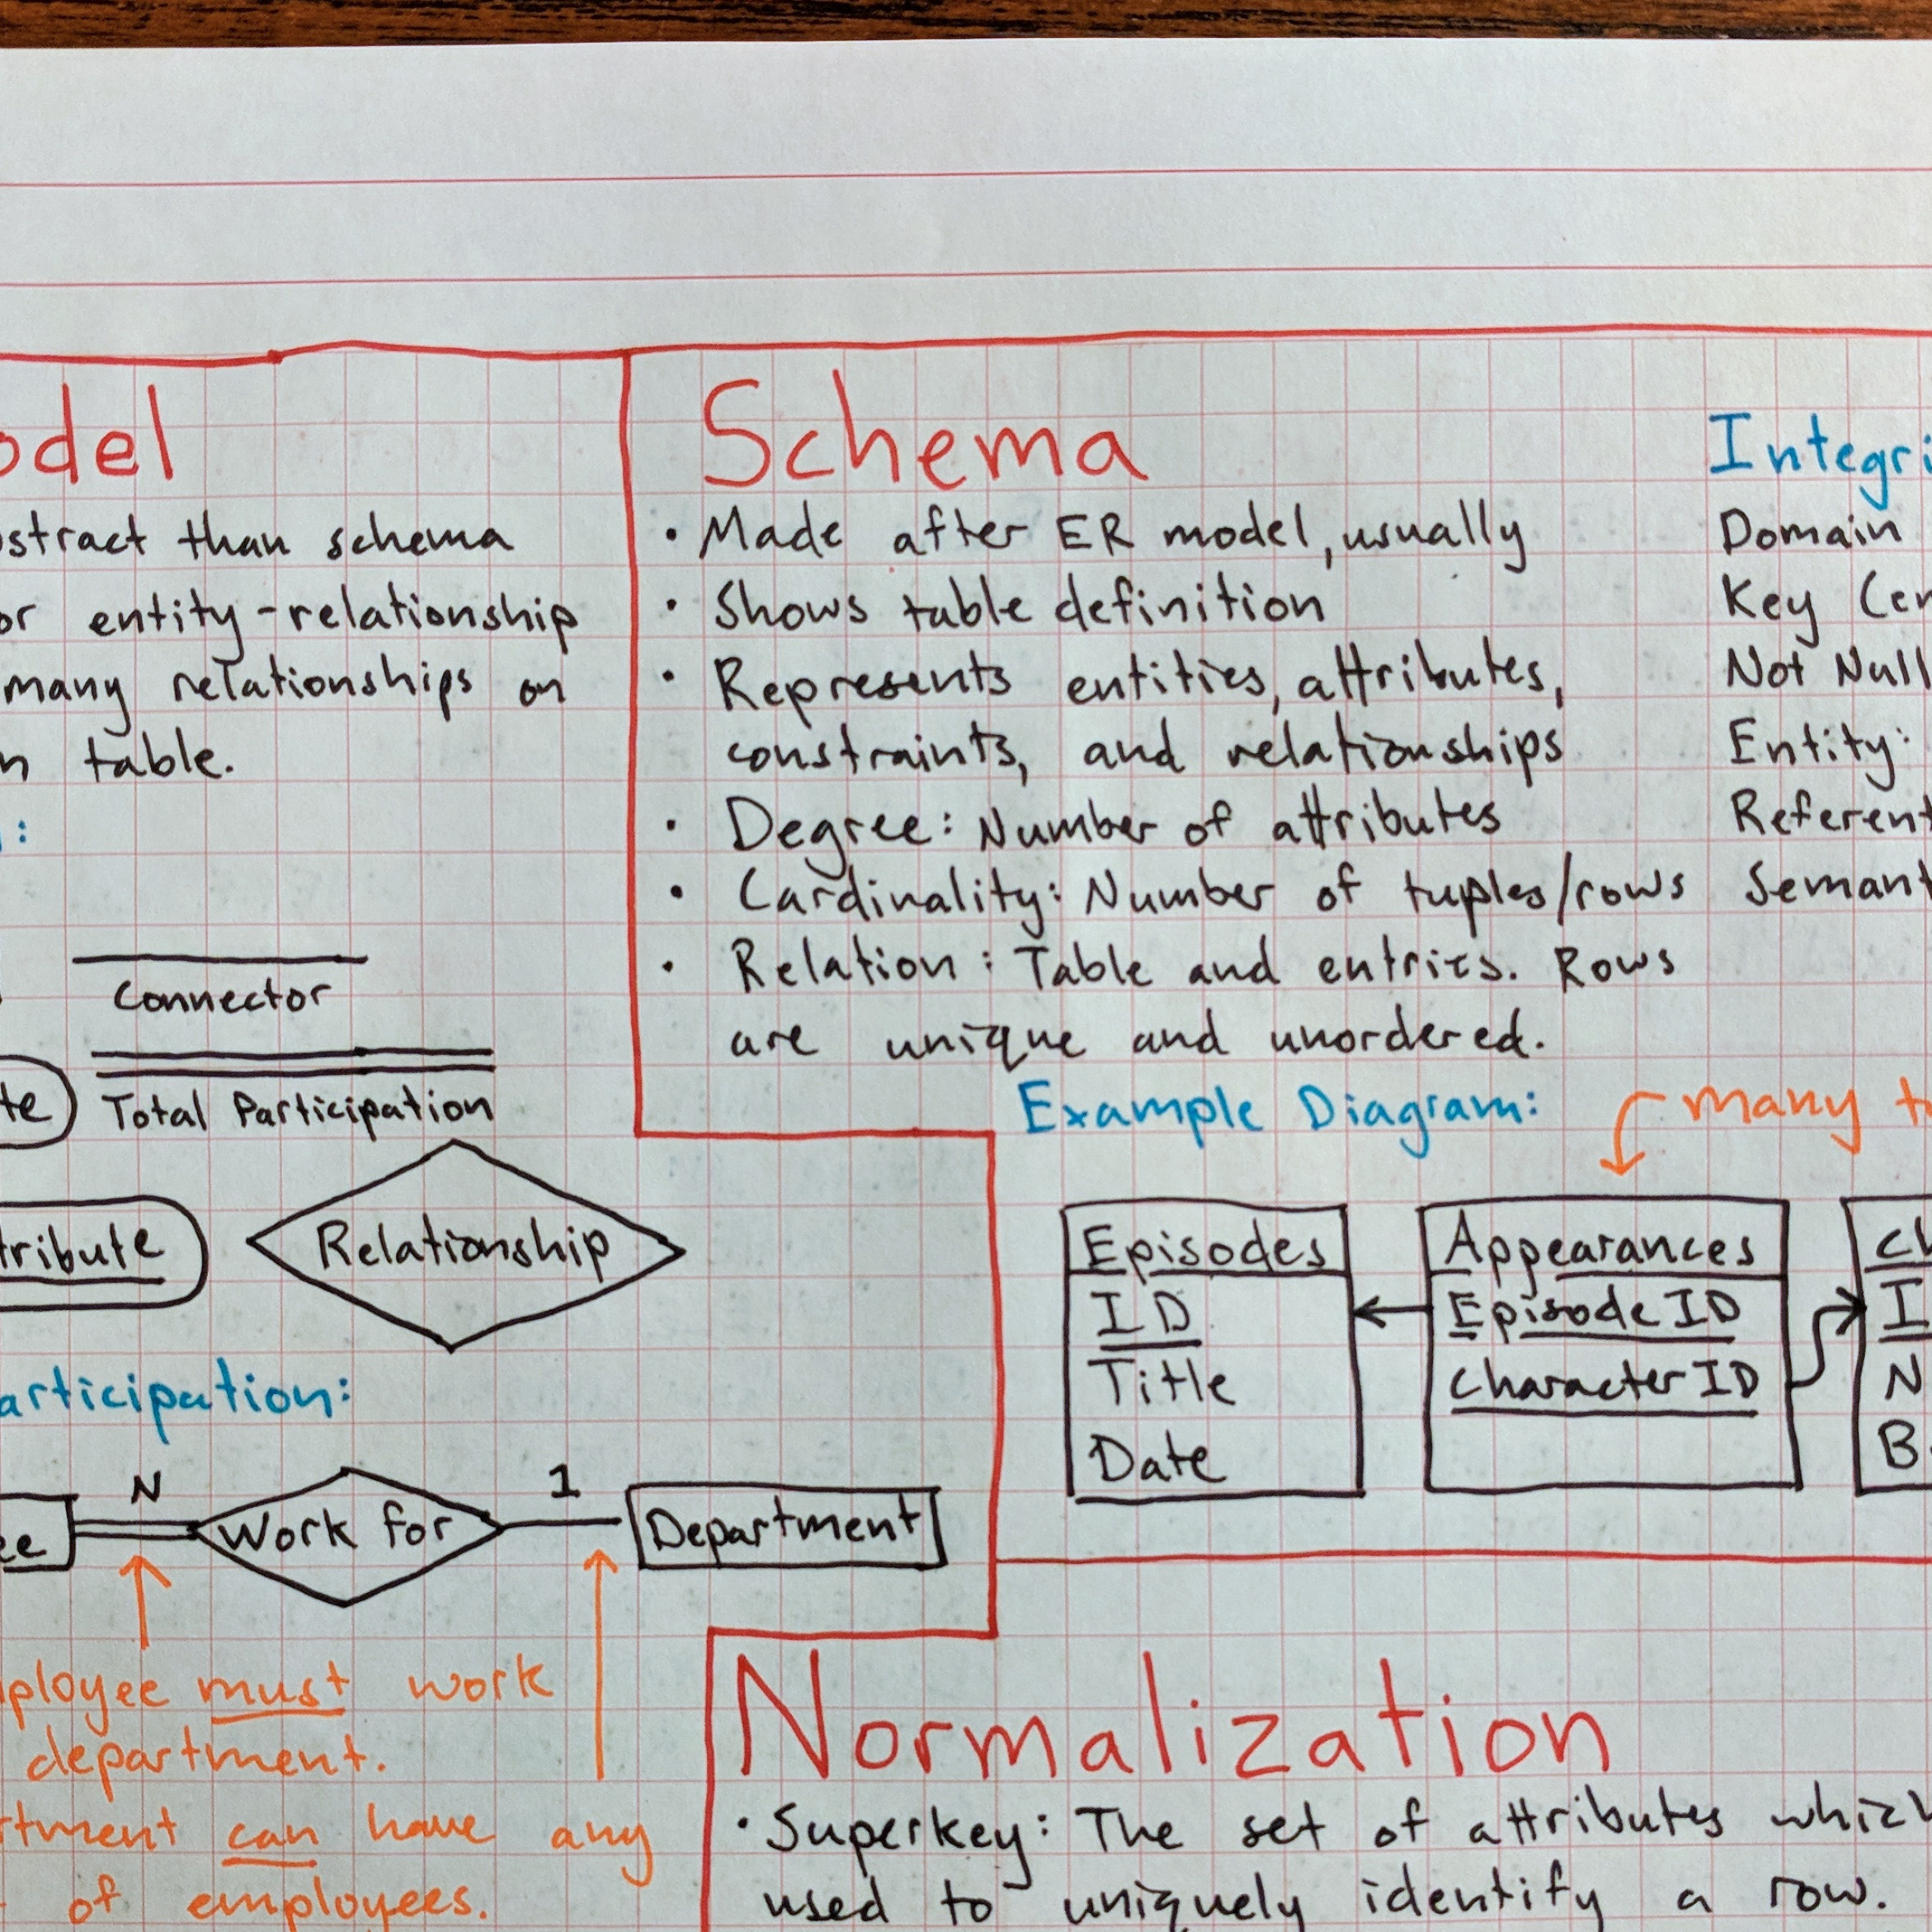 odel
stract than schema
or entity-relationship
many relationships on
n table.
:
Connector
te
Total Participation
tribute
Relationship
articipation:
N
1
ee
Work for
Department
ployee must work
department.
rtment can have any
of employees.
Schema
• Made after ER model, usually
• Shows table definition
• Represents entities, attributes,
constraints, and relationships
• Degree: Number of attributes
• Cardinality: Number of tuples/rows
• Relation: Table and entries. Rows
are unique and unordered.
Integri
Domain
Key (en
Not Null
Entity:
Referent
Semant
Example Diagram:
many t
Episodes
ID
Title
Date
Appearances
EpisodeID
CharacterID
Ch
I
N
B
Normalization
• Superkey: The set of attributes which
used to uniquely identify a row.